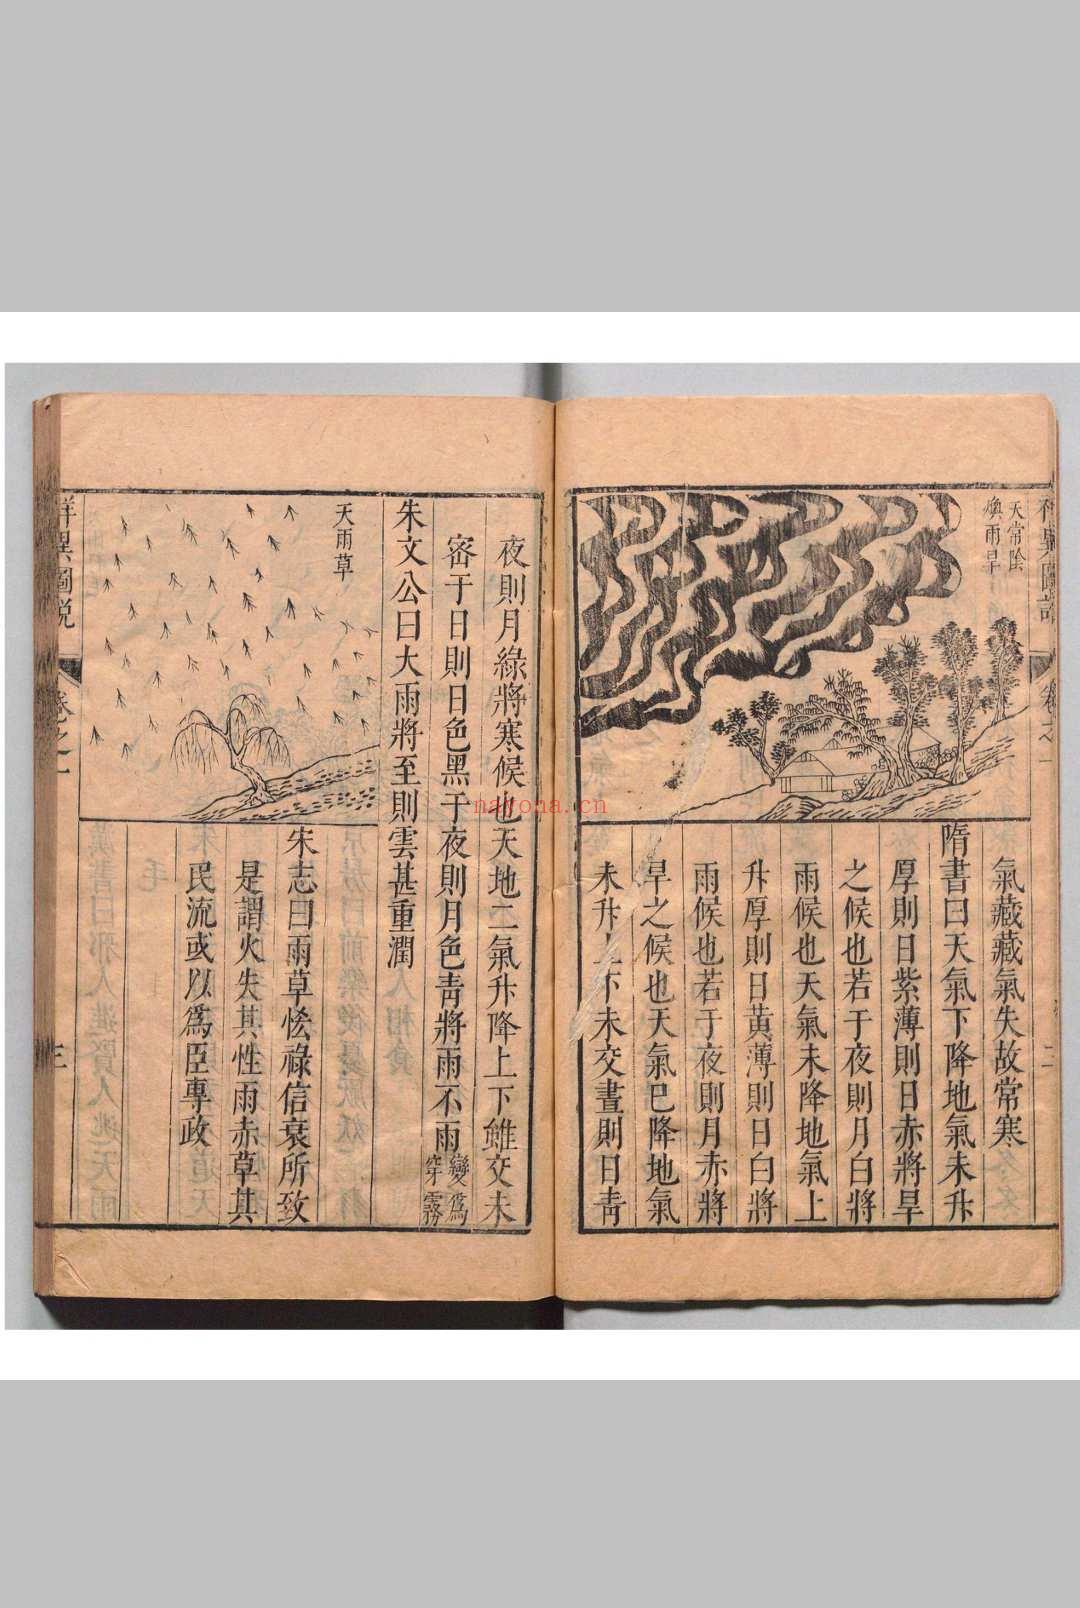 天常陰
煥雨旱
氣藏藏氣失故常寒
隋書曰天氣下降地氣未升
厚則日紫薄則日赤將旱
之候也若于夜則月白將
雨候也天氣未降地氣上
升厚則日黃薄則日白將
雨候也若于夜則月赤將
旱之候也天氣已降地氣
未升上下未交晝則日靑
夜則月綠將寒候也天地二氣升降上下雖交未
密于日則日色黑于夜則月色靑將雨不雨變爲
穿霧
朱文公曰大雨將至則雲甚重潤
天雨草
宋志曰雨草恡祿信衰所致
是謂火失其性雨赤草其
民流或以爲臣專政
祥異圖説
卷之一
三
nayona.cn